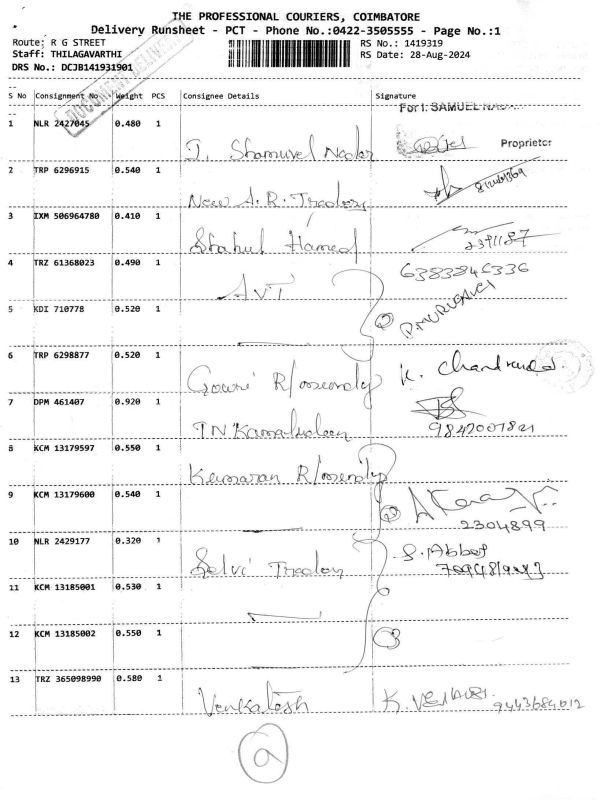 THE PROFESSIONAL COURIERS, COIMBATORE
Delivery Runsheet - PCT - Phone No.:0422-3505555 - Page No.:1
Route: R G STREET RS No.: 1419319
Staff: THILAGAVARTHI RS Date: 28-Aug-2024
DRS No.: DCJB141931901
S No Consignment No Weight PCS Consignee Details Signature
For I. SAMUEL
1 NLR 2427045 0.480 1
Proprietor
2 TRP 6296915 0.540 1
New A.R. Tradors
3 IXM 506964780 0.410 1
Shahul Hamed
4 TRZ 61368023 0.490 1 6383846336
AVT
P.MURUGAVEL
5 KDI 710778 0.520 1
②
6 TRP 6298877 0.520 1
Gowri K. Chandran
7 DPM 461407 0.920 1
TN Kamaludeen 9842007821
8 KCM 13179597 0.550 1
Kumaran
9 KCM 13179600 0.540 1
② 2304899
10 NLR 2429177 0.320 1
Selvi Trador S. Abbas
11 KCM 13185001 0.530 1
12 KCM 13185002 0.550 1
③
13 TRZ 365098990 0.580 1
Venkatesh 9443684012
9